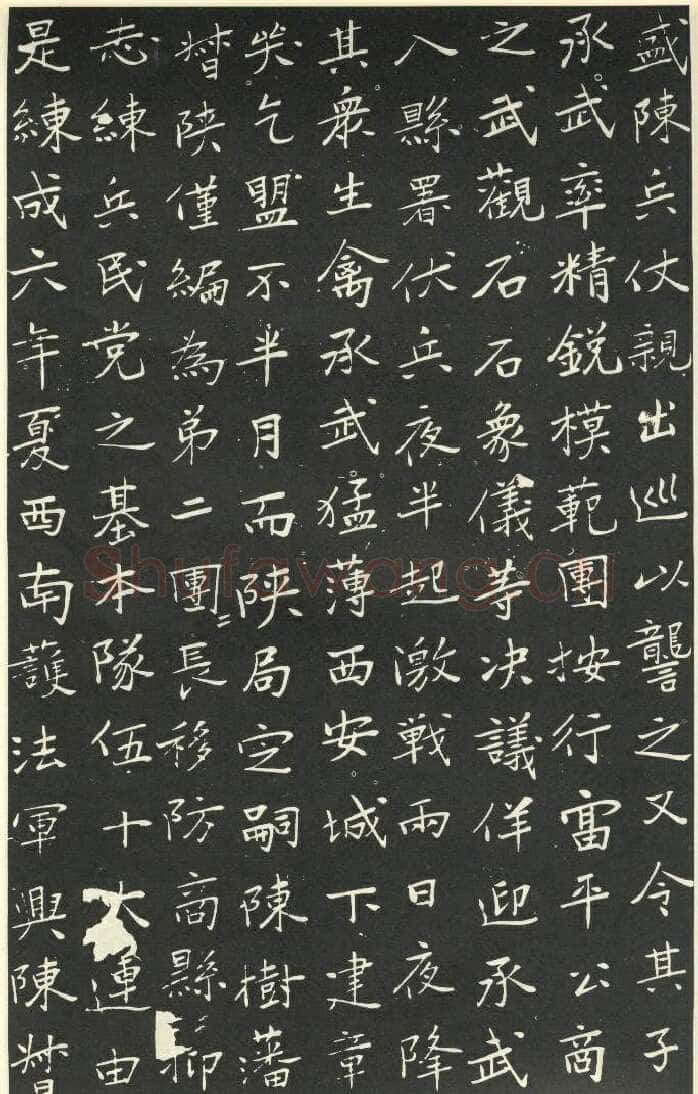 盛陳兵仗親出巡以讋之又令其子
承武率精銳模範團按行富平公商
之武觀石石象儀等决議佯迎承武
入縣署伏兵夜半起激戰兩日夜降
其衆生禽承武猛薄西安城下建章
乞盟不半月而陝局定嗣陳樹藩
督陝僅編為弟二團〻長移防商縣〻抑
志練兵民党之基本隊伍十大連由
是練成六年夏西南護法軍興陳督
Shufawang.CN